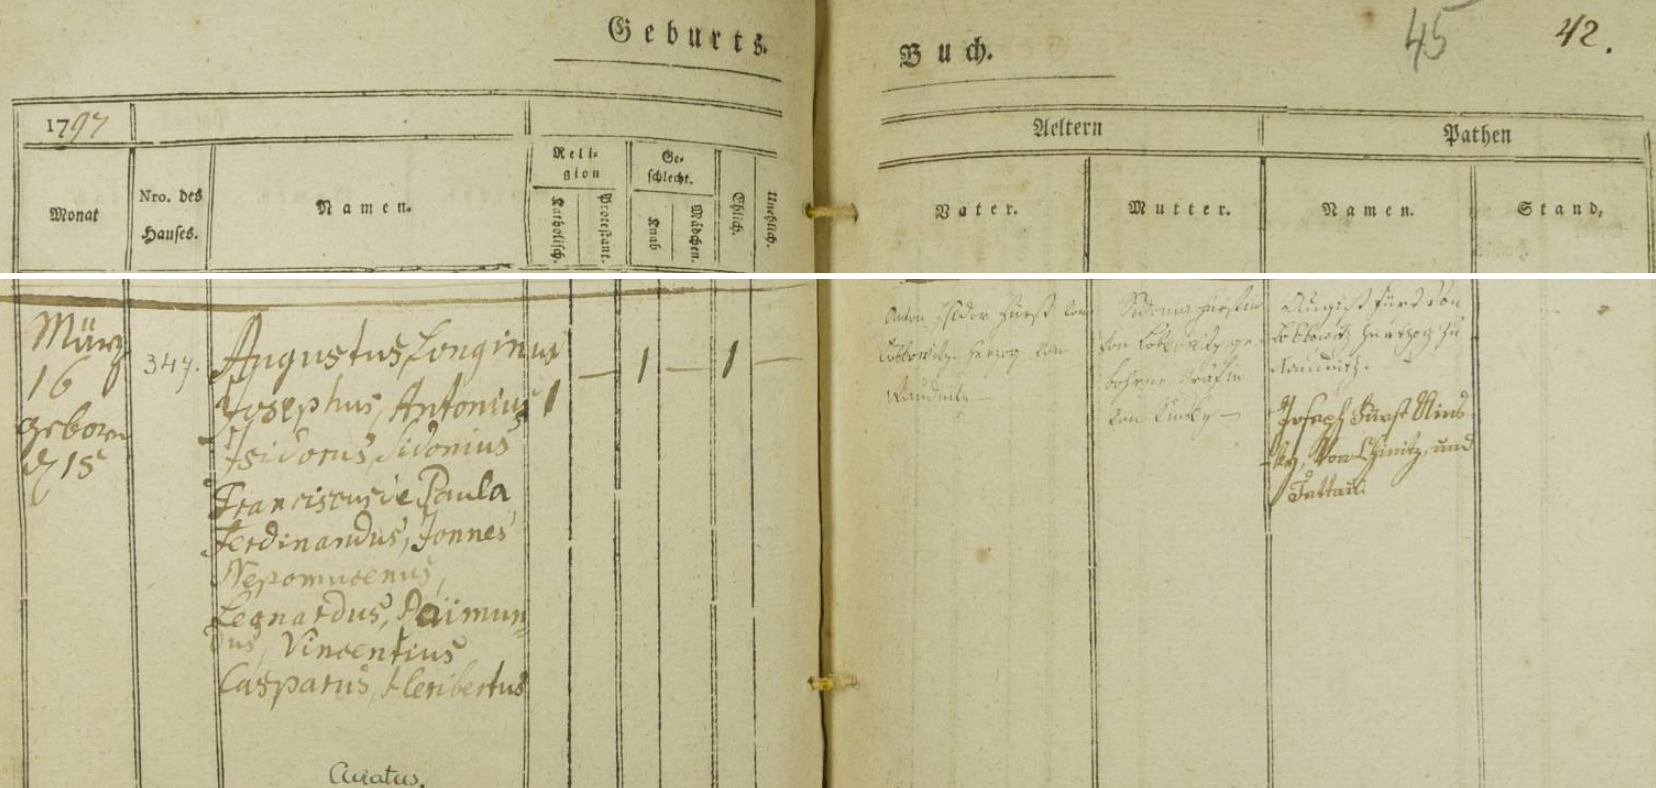 Geburts-
Buch.
45
42.
1797
Aeltern
Pathen
Reli-
gion
Ge-
schlecht.
Monat
Nro. des
Hauses.
Namen.
Katholisch.
Protestant.
Knab
Mädchen.
Ehlich.
Unehlich.
Vater.
Mutter.
Namen.
Stand,
März
16
geborn
15
347.
Augustus, Longinus
Josephus, Antonius
Isidorus, Sidonius
Franciscus de Paula
Ferdinandus, Jonnes
Nepomucenus,
Leonardus, Raimun
dus, Vincentius
Casparus, Heribertus
Curatus.
1 — 1 — 1 —
Anton Isidor Fürst von
Lobkowitz. Herzog von
Raudnitz —
Sidonia Fürstin
von Lobkowitz ge
bohrne Gräfin
von Kinsky —
August Fürst von
Lobkowitz Herzog zu
Raudnitz.
Joseph Fürst Kins-
ky, von Chinitz, und
Tettau.